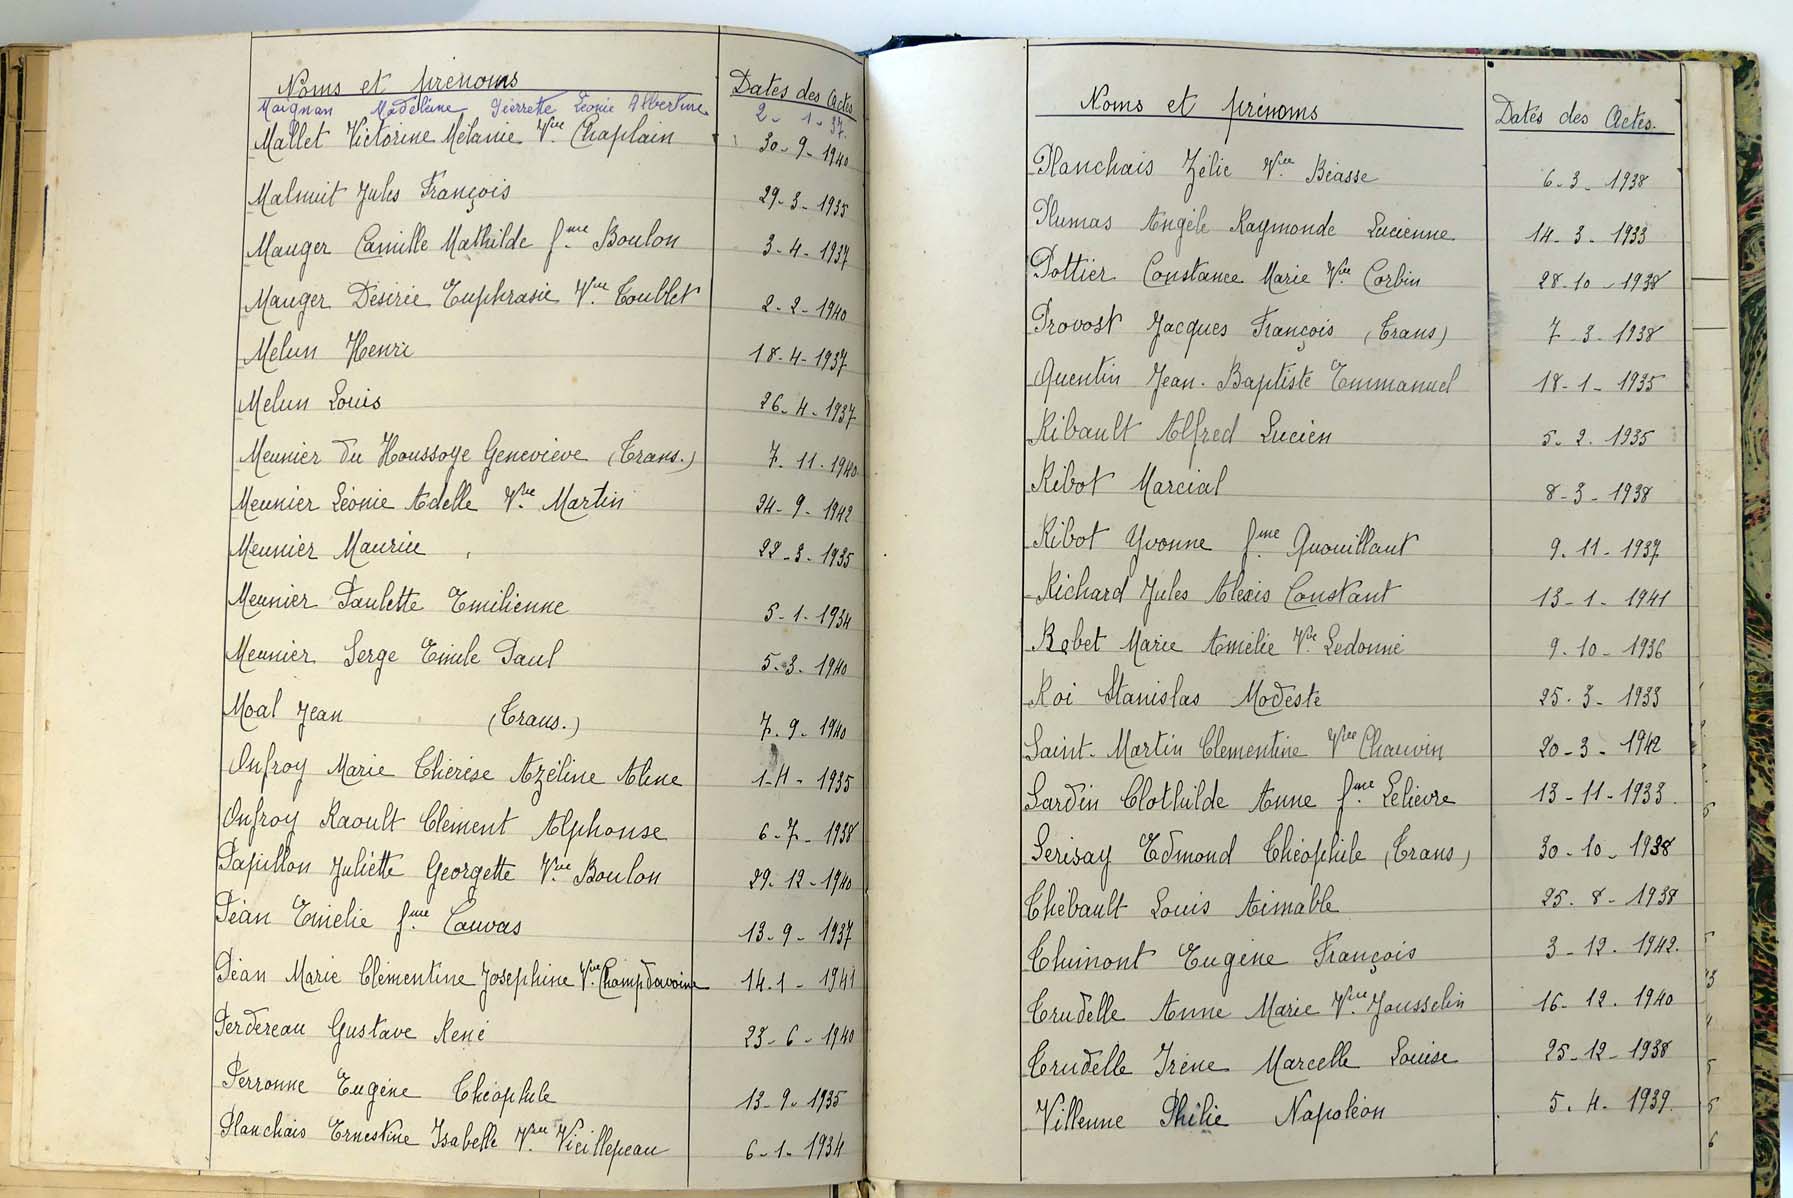 Noms et prénoms Dates des Actes
Maignan Madeleine Pierrette Léonie Albertine 2-1-37.
Mallet Victorine Mélanie Vve Chaplain 30-9-1940
Malnuit Jules François 29-3-1935
Mauger Camille Mathilde fme Boulon 3-4-1937
Mauger Désirée Euphrasie Vve Toublet 2-2-1940
Melun Henri 18-4-1937
Melun Louis 26-4-1937
Meunier du Houssoye Geneviève (Trans.) 7.11.1940
Meunier Léonie Adelle Vve Martin 24-9-1942
Meunier Maurice 22-3-1935
Meunier Paulette Emilienne 5-1-1934
Meunier Serge Emile Paul 5-3-1940
Moal Jean (Trans.) 7-9-1940
Onfroy Marie Thérèse Azéline Aline 1-11-1935
Onfroy Raoult Clément Alphonse 6-7-1938
Papillon Juliette Georgette Vve Boulon 29-12-1940
Péan Emélie fme Cauvas 13-9-1937
Péan Marie Clémentine Joséphine Vve Champdavoine 14.1-1941
Perdereau Gustave René 23-6-1940
Perronne Eugène Théophile 13-9-1935
Planchais Ernestine Isabelle Vve Vieillepeau 6-1-1934
Noms et prénoms Dates des Actes.
Planchais Zélie Vve Béasse 6-3-1938
Plumas Angèle Raymonde Lucienne 14-3-1933
Pottier Constance Marie Vve Corbin 28-10-1938
Provost Jacques François (Trans) 7-3-1938
Quentin Jean-Baptiste Emmanuel 18-1-1935
Ribault Alfred Lucien 5-2-1935
Ribot Marcial 8-3-1938
Ribot Yvonne fme Quouillaut 9.11-1937
Richard Jules Alexis Constant 13-1-1941
Robet Marie Amélie Vve Ledonné 9-10-1936
Roi Stanislas Modeste 25.3-1933
Saint-Martin Clémentine Vve Chauvin 20-3-1942
Sardin Clothilde Anne fme Lelièvre 13-11-1933.
Serisay Edmond Théophile (Trans) 30-10-1938
Thébault Louis Aimable 25.8-1938
Thimont Eugène François 3-12.1942.
Trudelle Anne Marie Vve Jousselin 16-12.1940
Trudelle Irène Marcelle Louise 25-12-1938
Villenne Philie Napoléon 5.4.1939.